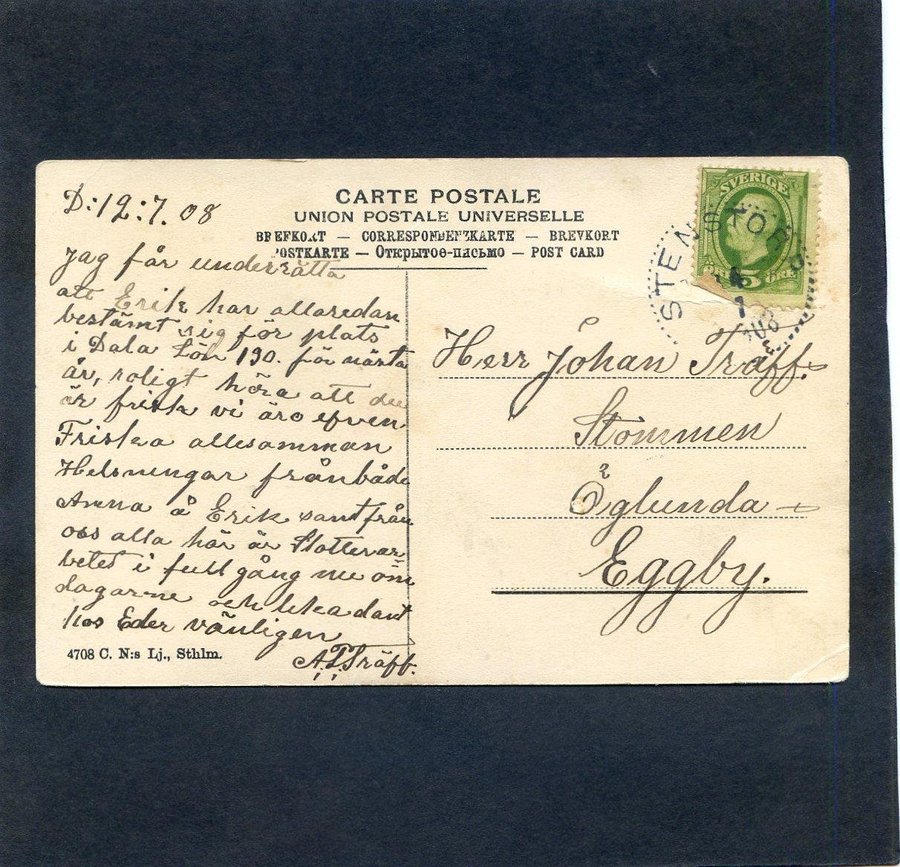 D:12:7.08
CARTE POSTALE
UNION POSTALE UNIVERSELLE
BREFKORT — CORRESPONDENZKARTE — BREVKORT
POSTKARTE — Открытое-письмо — POST CARD
SVERIGE
5
STENSTORP
7
Jag får underrätta
att Erik har allaredan
bestämt sig för plats
i Dala Lön 130. för nästa
år, roligt höra att du
är frisk vi äro efven
Friska allesamman
Helsningar från både
Anna å Erik samt från
oss alla här är Slotterar
betet i full gång nu om
dagarne och likadant
hos Eder vänligen
A.T. Träff.
Herr Johan Träff.
Stommen
Öglunda
Eggby.
4708 C. N:s Lj., Sthlm.